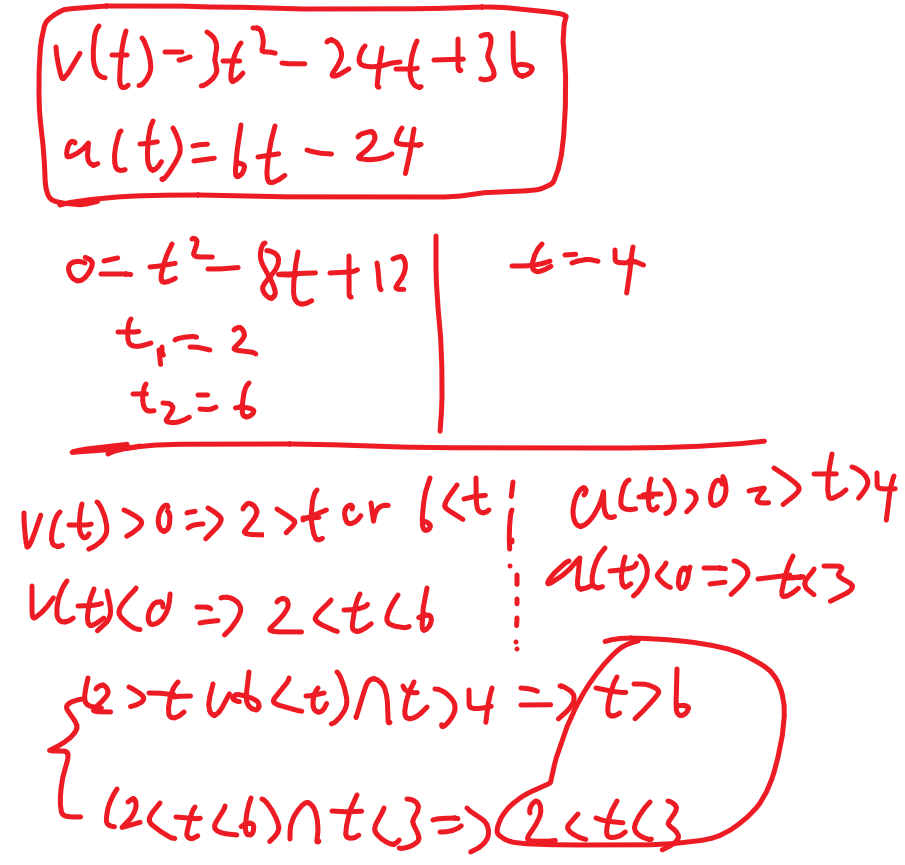 v(t)=3t²-24t+36
a(t)=6t-24
0=t²-8t+12
t=4
t₁=2
t₂=6
v(t)>0=>2>t or 6<t
a(t)>0=>t>4
v(t)<0=>2<t<6
a(t)<0=>t<3
(2>t∪6<t)∩t>4=>t>6
(2<t<6)∩t<3=>2<t<3